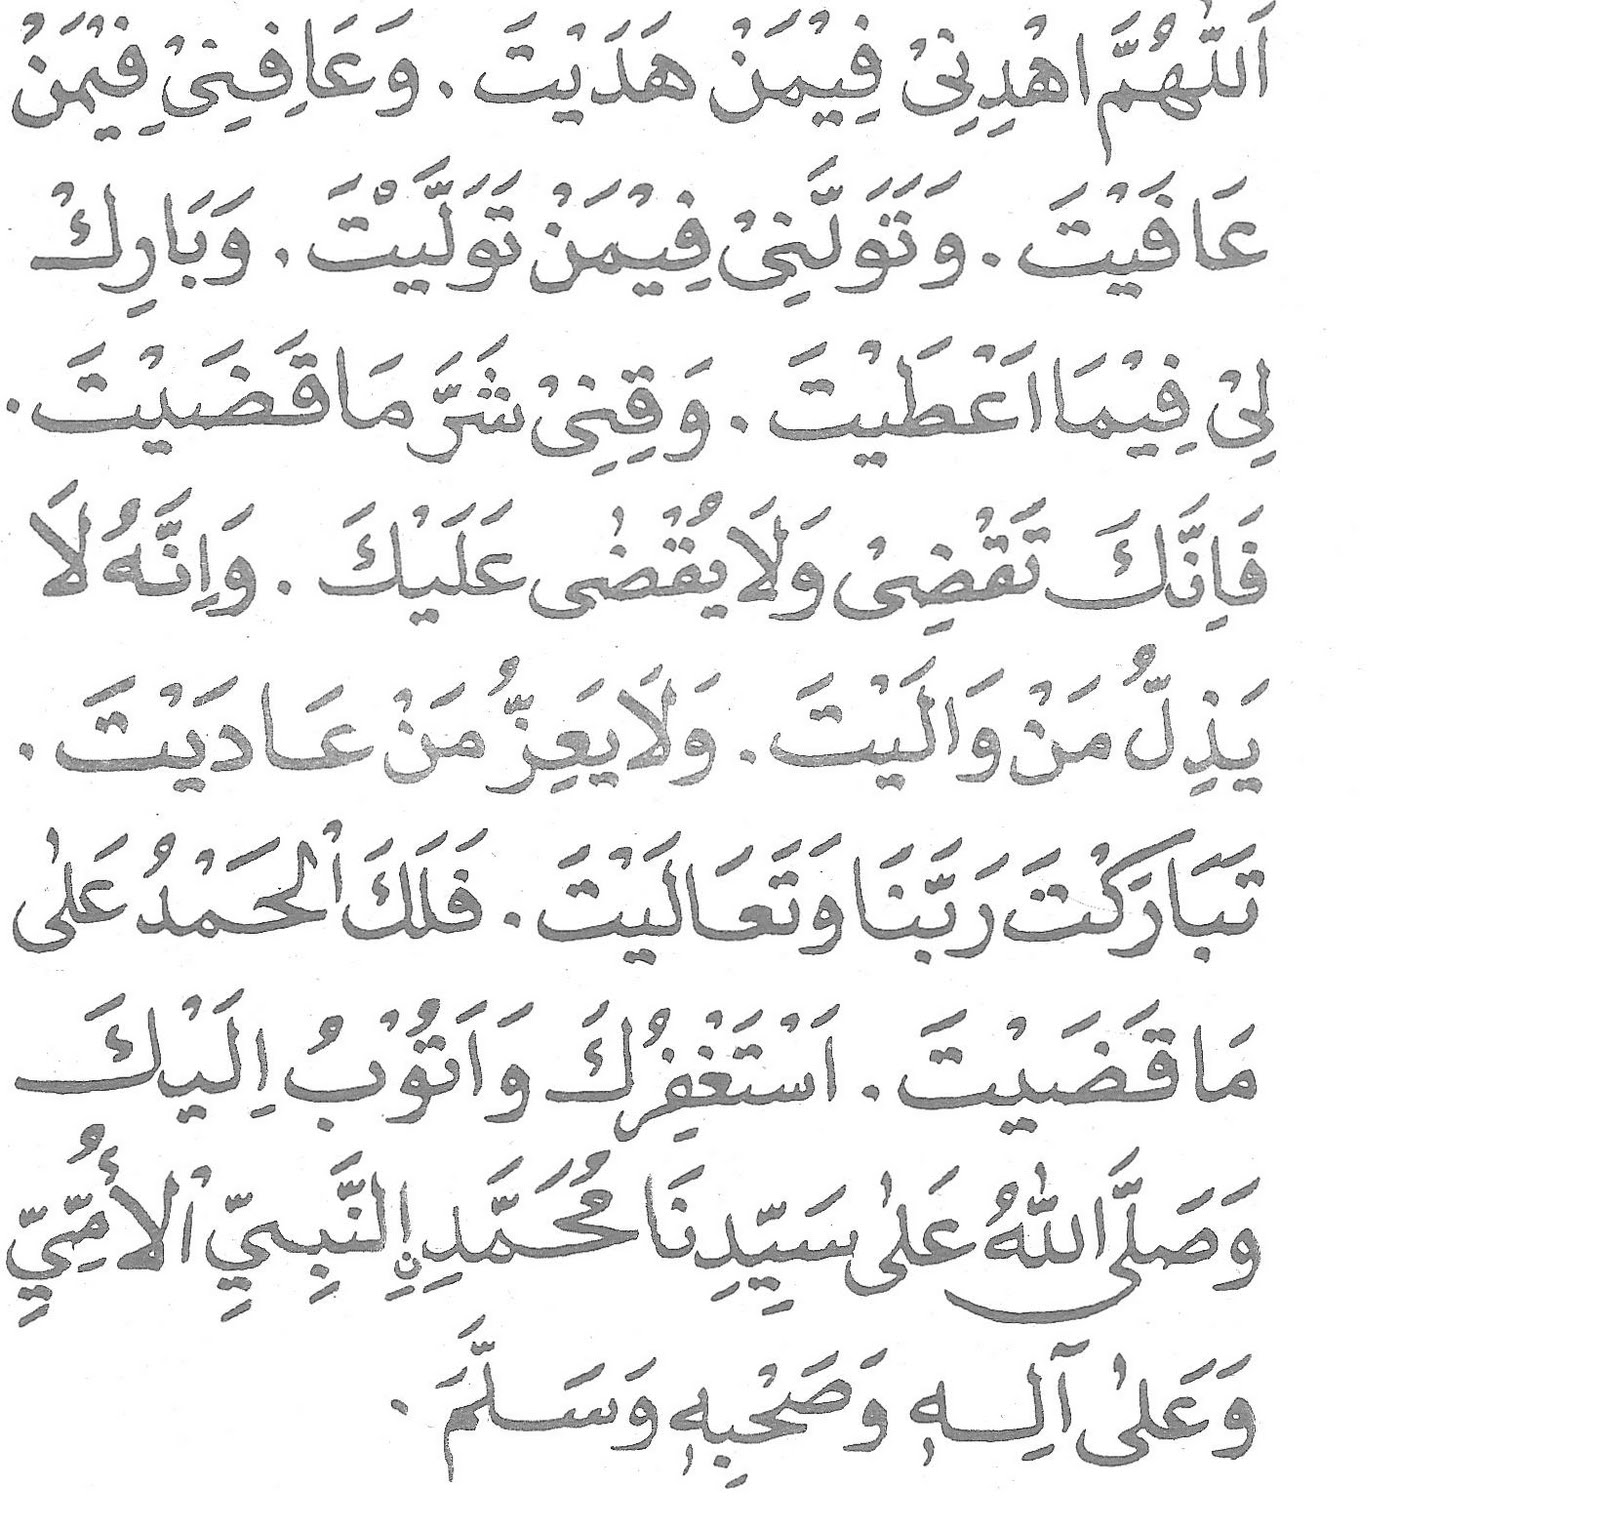 اَللّٰهُمَّ اهْدِنِيْ فِيْمَنْ هَدَيْتَ. وَعَافِنِيْ فِيْمَنْ
عَافَيْتَ. وَتَوَلَّنِيْ فِيْمَنْ تَوَلَّيْتَ. وَبَارِكْ
لِيْ فِيْمَا اَعْطَيْتَ. وَقِنِيْ شَرَّ مَا قَضَيْتَ.
فَاِنَّكَ تَقْضِيْ وَلَا يُقْضٰى عَلَيْكَ. وَاِنَّهُ لَا
يَذِلُّ مَنْ وَالَيْتَ. وَلَا يَعِزُّ مَنْ عَادَيْتَ.
تَبَارَكْتَ رَبَّنَا وَتَعَالَيْتَ. فَلَكَ الْحَمْدُ عَلٰى
مَا قَضَيْتَ. اَسْتَغْفِرُكَ وَاَتُوْبُ اِلَيْكَ
وَصَلَّى اللّٰهُ عَلٰى سَيِّدِنَا مُحَمَّدٍ اِلنَّبِيِّ الْأُمِّيِّ
وَعَلٰى آلِهٖ وَصَحْبِهٖ وَسَلَّمَ.